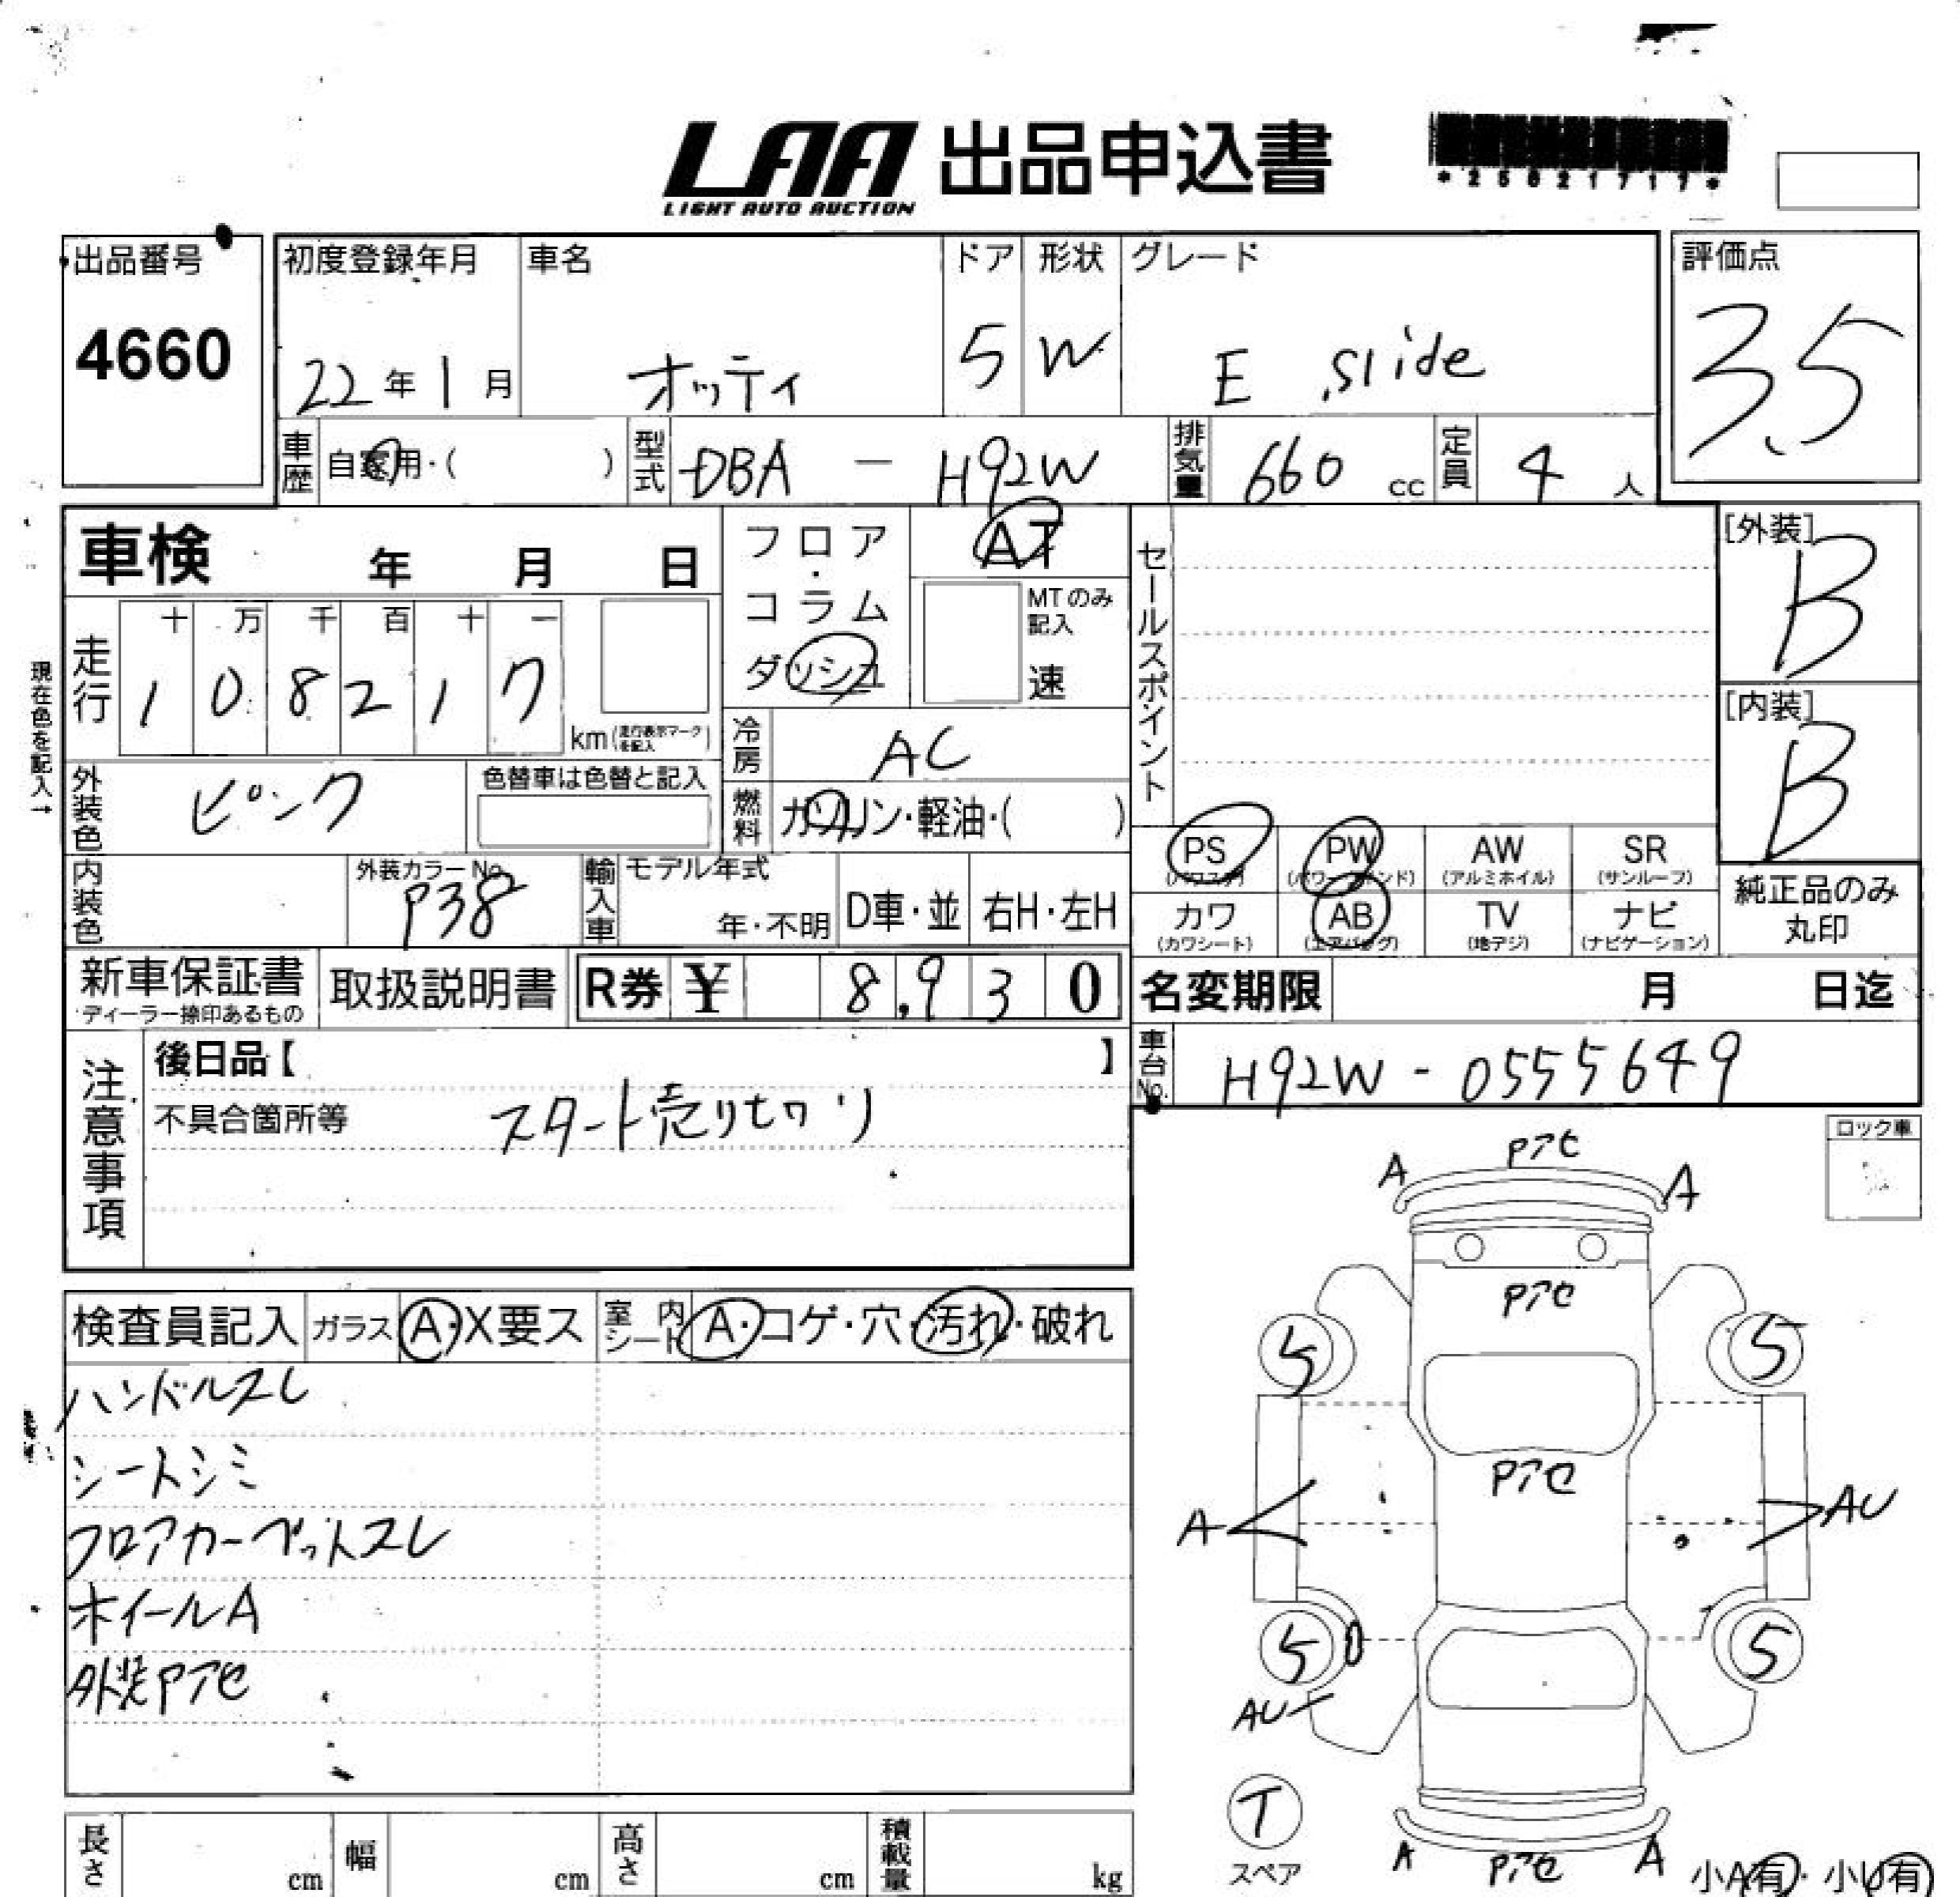 LAA 出品申込書
LIGHT AUTO AUCTION
出品番号
4660
初度登録年月
22年1月
車名
オッティ
ドア
5
形状
W
グレード
E slide
評価点
3.5
車歴
自家用・( )
型式
DBA - H92W
排気量
660 cc
定員
4 人
車検 年 月 日
フロア・コラム
ダッシュ
AT
MTのみ記入
速
セールスポイント
[外装]
B
[内装]
B
現在色を記入→
走行
十 万 千 百 十 一
1 0 8 2 1 7
km(走行表示マークを記入)
冷房
AC
外装色
ピンク
色替車は色替と記入
燃料
ガソリン・軽油・( )
内装色
外装カラーNo.
P38
輸入車
モデル年式
年・不明
D車・並
右H・左H
PS
(パワステ)
PW
(パワーウインド)
AW
(アルミホイル)
SR
(サンルーフ)
カワ
(カワシート)
AB
(エアバッグ)
TV
(地デジ)
ナビ
(ナビゲーション)
純正品のみ
丸印
新車保証書
ディーラー捺印あるもの
取扱説明書
R券 ¥ 8,930
名変期限 月 日迄
車台No.
H92W - 0555649
注意事項
後日品【 】
不具合箇所等
スタート売り切り
ロック車
検査員記入
ガラス
A・X要ス
室内シート
A・コゲ・穴・汚れ・破れ
ハンドルスレ
シートシミ
フロアカーペットスレ
ホイールA
外装Pアセ
Pアセ
A A
Pアセ
5 5
Pアセ
A AU
5 5
AU
T
スペア
A Pアセ A
小A有・小U有
長さ cm
幅 cm
高さ cm
積載量 kg